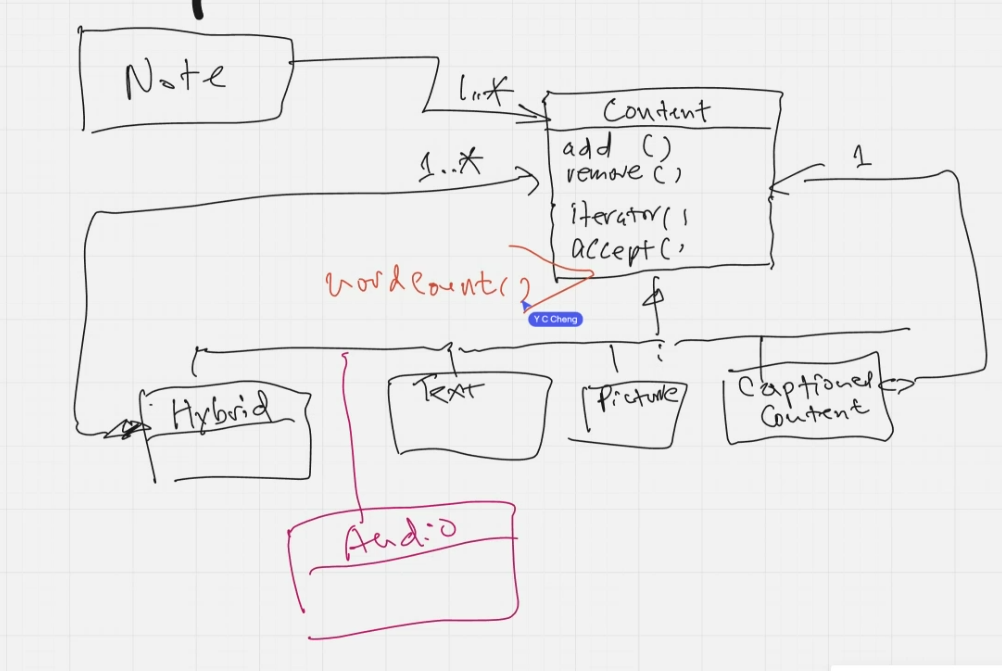 Note
1..*
Content
add ()
remove ()
iterator()
accept()
1..*
1
wordcount()
Y C Cheng
Hybrid
Text
Picture
Captioned
Content
Audio